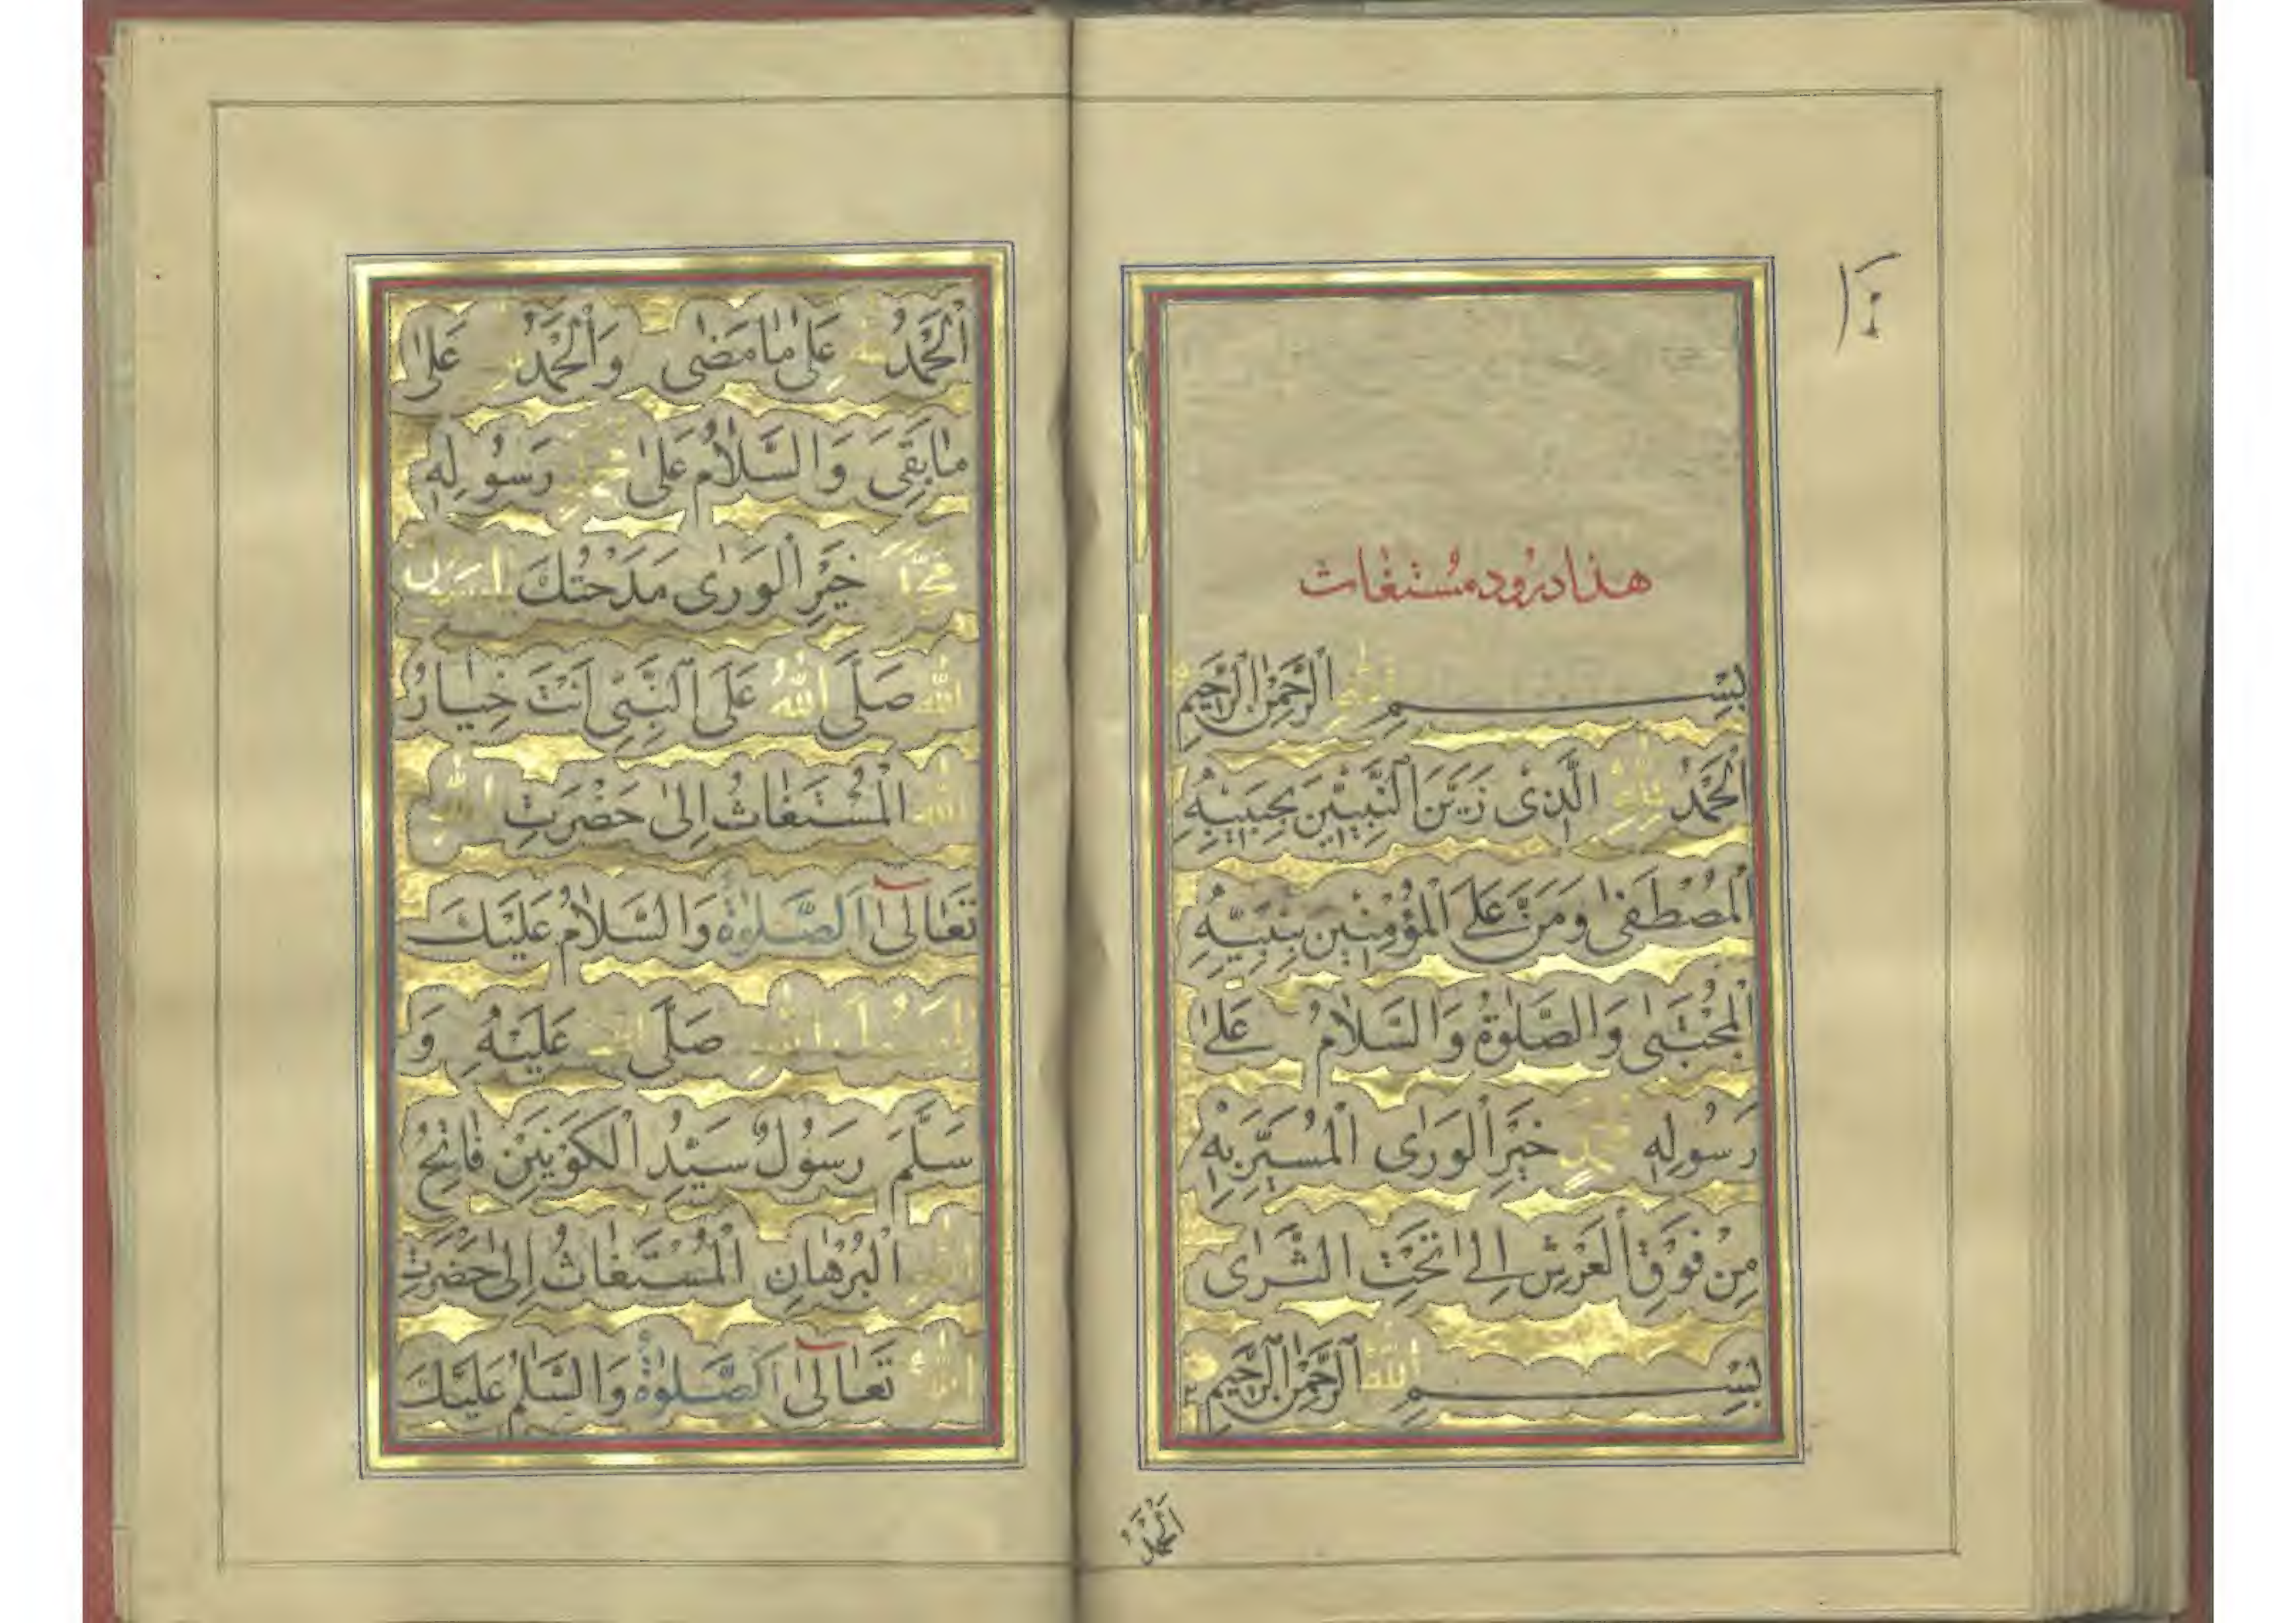 هذا درود مستغاث
بِسْمِ اللّٰهِ الرَّحْمٰنِ الرَّحِيْمِ
اَلْحَمْدُ لِلّٰهِ الَّذِىْ زَيَّنَ النَّبِيّٖنَ بِحَبِيْبِهِ
الْمُصْطَفٰى وَمَنَّ عَلَى الْمُؤْمِنِيْنَ بِنَبِيِّهِ
الْمُجْتَبٰى وَالصَّلٰوةُ وَالسَّلَامُ عَلٰى
رَسُوْلِهٖ مُحَمَّدٍ خَيْرِ الْوَرٰى الْمُسَيَّرِ بِهٖ
مِنْ فَوْقِ الْعَرْشِ اِلٰى تَحْتِ الثَّرٰى
بِسْمِ اللّٰهِ الرَّحْمٰنِ الرَّحِيْمِ
اَلْحَمْدُ
اَلْحَمْدُ لِلّٰهِ عَلٰى مَا مَضٰى وَالْحَمْدُ لِلّٰهِ عَلٰى
مَا بَقِىَ وَالسَّلَامُ عَلٰى رَسُوْلِهٖ
مُحَمَّدٍ خَيْرِ الْوَرٰى مَدَحْتُكَ يَا رَسُوْلَ
اللّٰهِ صَلَّى اللّٰهُ عَلَى النَّبِىِّ اَنْتَ خِيَارُ
اللّٰهِ الْمُسْتَغَاثُ اِلٰى حَضْرَتِ اللّٰهِ
تَعَالٰى اَلصَّلٰوةُ وَالسَّلَامُ عَلَيْكَ
يَا رَسُوْلَ اللّٰهِ صَلَّى اللّٰهُ عَلَيْهِ وَ
سَلَّمَ رَسُوْلٌ سَيِّدُ الْكَوْنَيْنِ فَاتِحُ
الْبُرْهَانِ الْمُسْتَغَاثُ اِلٰى حَضْرَتِ
اللّٰهِ تَعَالٰى اَلصَّلٰوةُ وَالسَّلٰمُ عَلَيْكَ